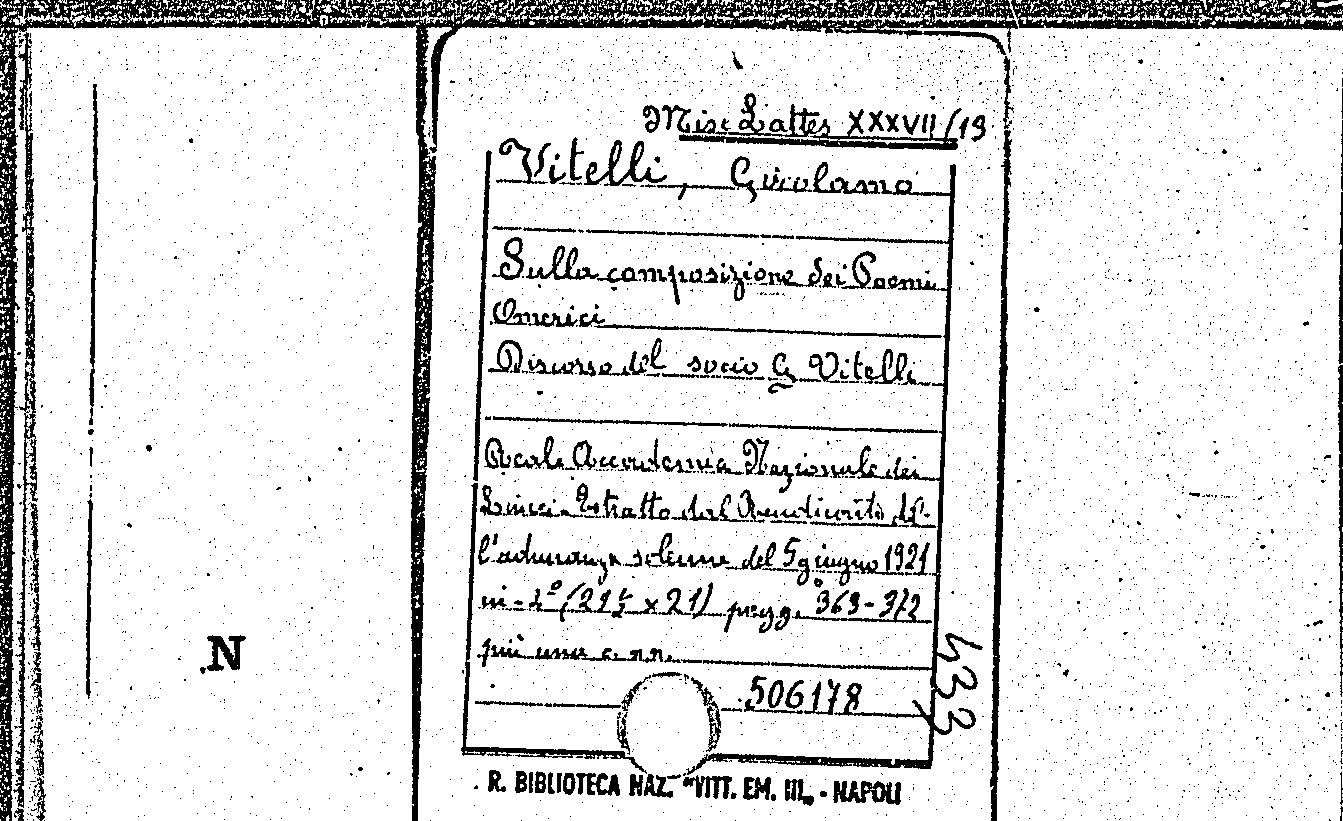 Misc Lattes XXXVII/19
Vitelli, Girolamo
Sulla composizione dei Poemi
Omerici
Discorso del socio G Vitelli
Reale Accademia Nazionale dei
Lincei. Estratto dal Rendiconto del-
l'adunanza solenne del 5 giugno 1921
in-2° x 21) pagg. 363-372
più una c. n.n.
506178
433
N
R. BIBLIOTECA NAZ. "VITT. EM. III„ - NAPOLI